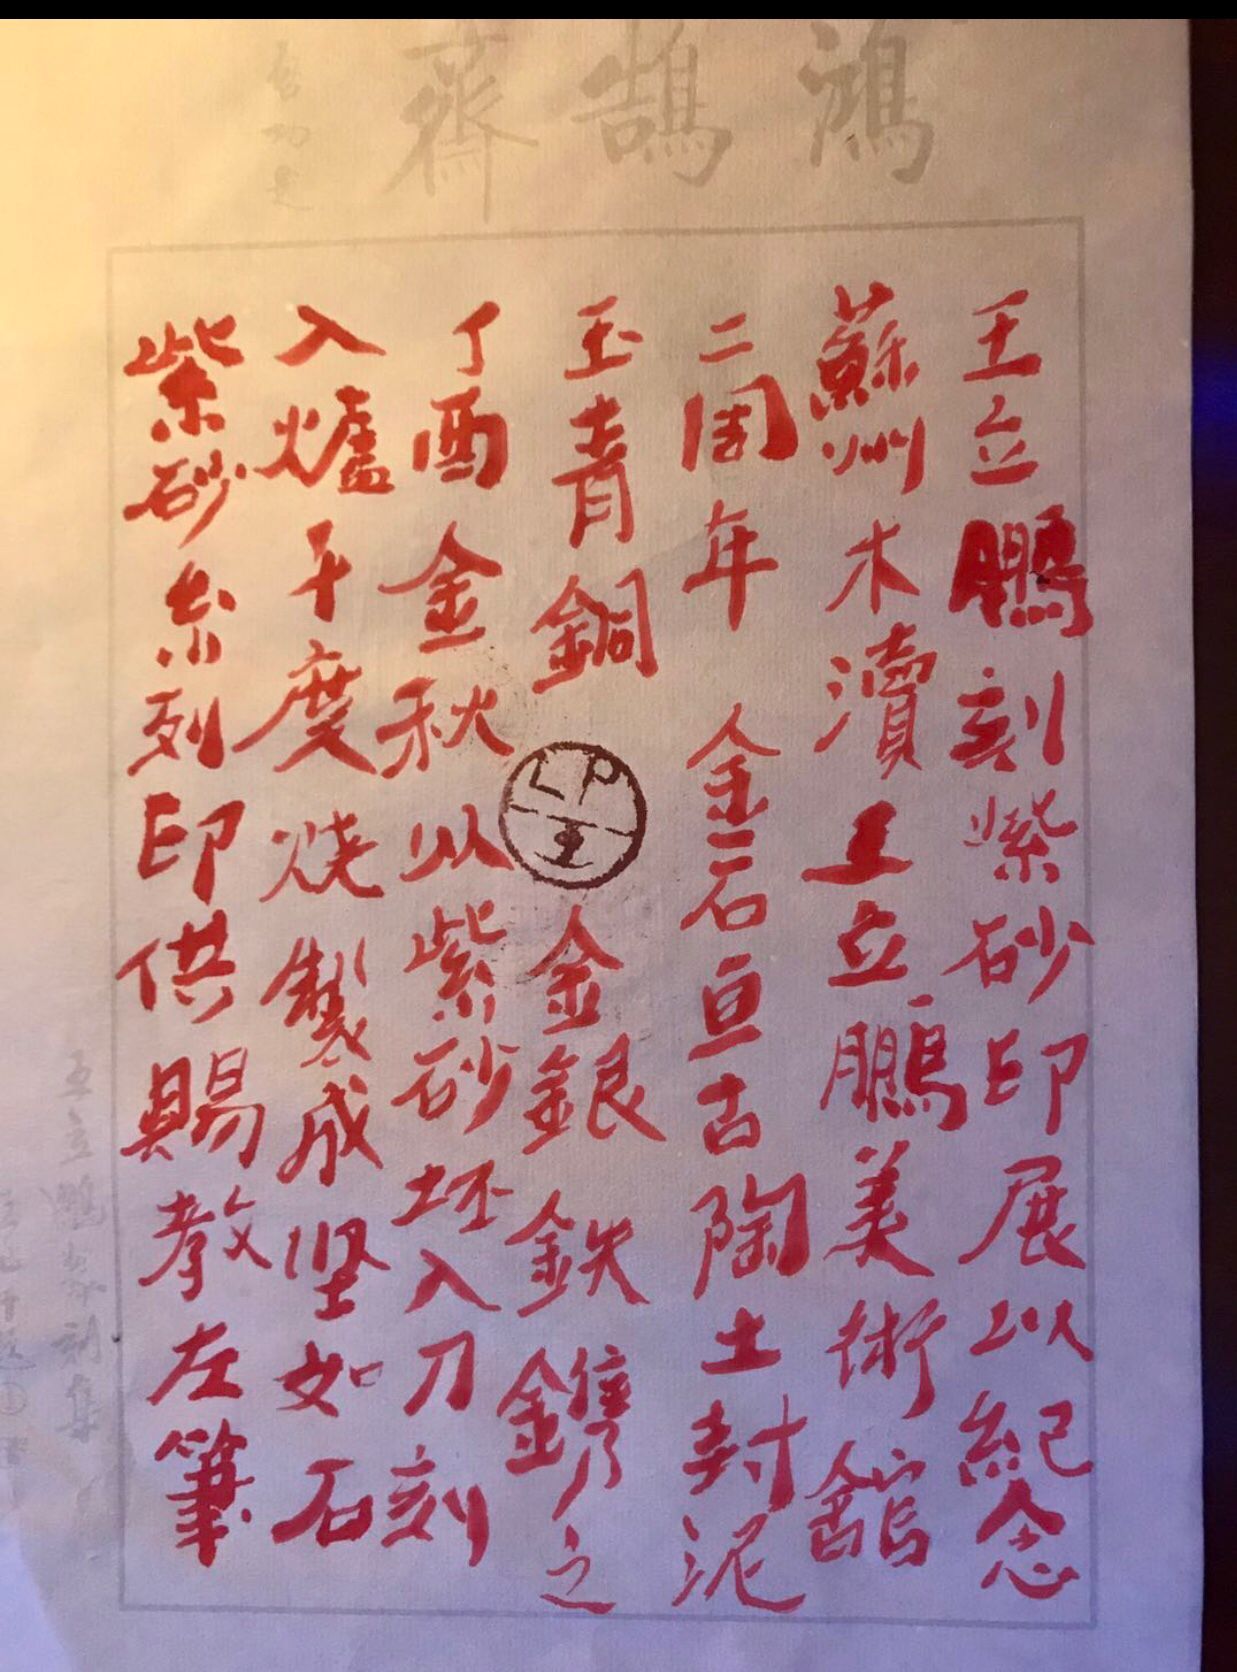 鴻鵠齋
啓功題
王立鵬刻紫砂印展以紀念
蘇州木瀆王立鵬美術館
二周年 金石亘古陶土封泥
玉青銅 金銀鉄鐫之
LP
王
丁酉金秋以紫砂坯入刀刻
入爐千度烧製成坚如石
紫砂糸列印供賜教左筆
王立鵬篆刻集